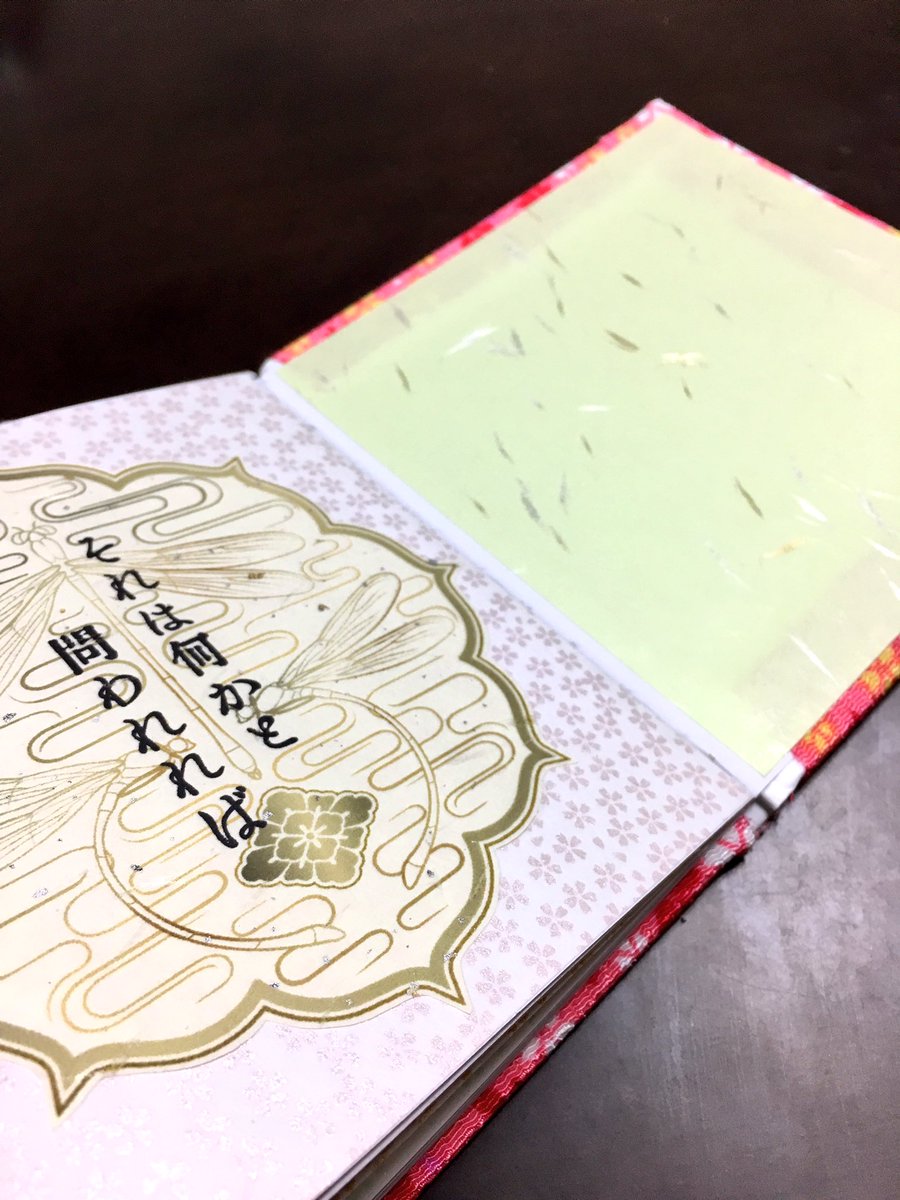 それは何かと
問われれば